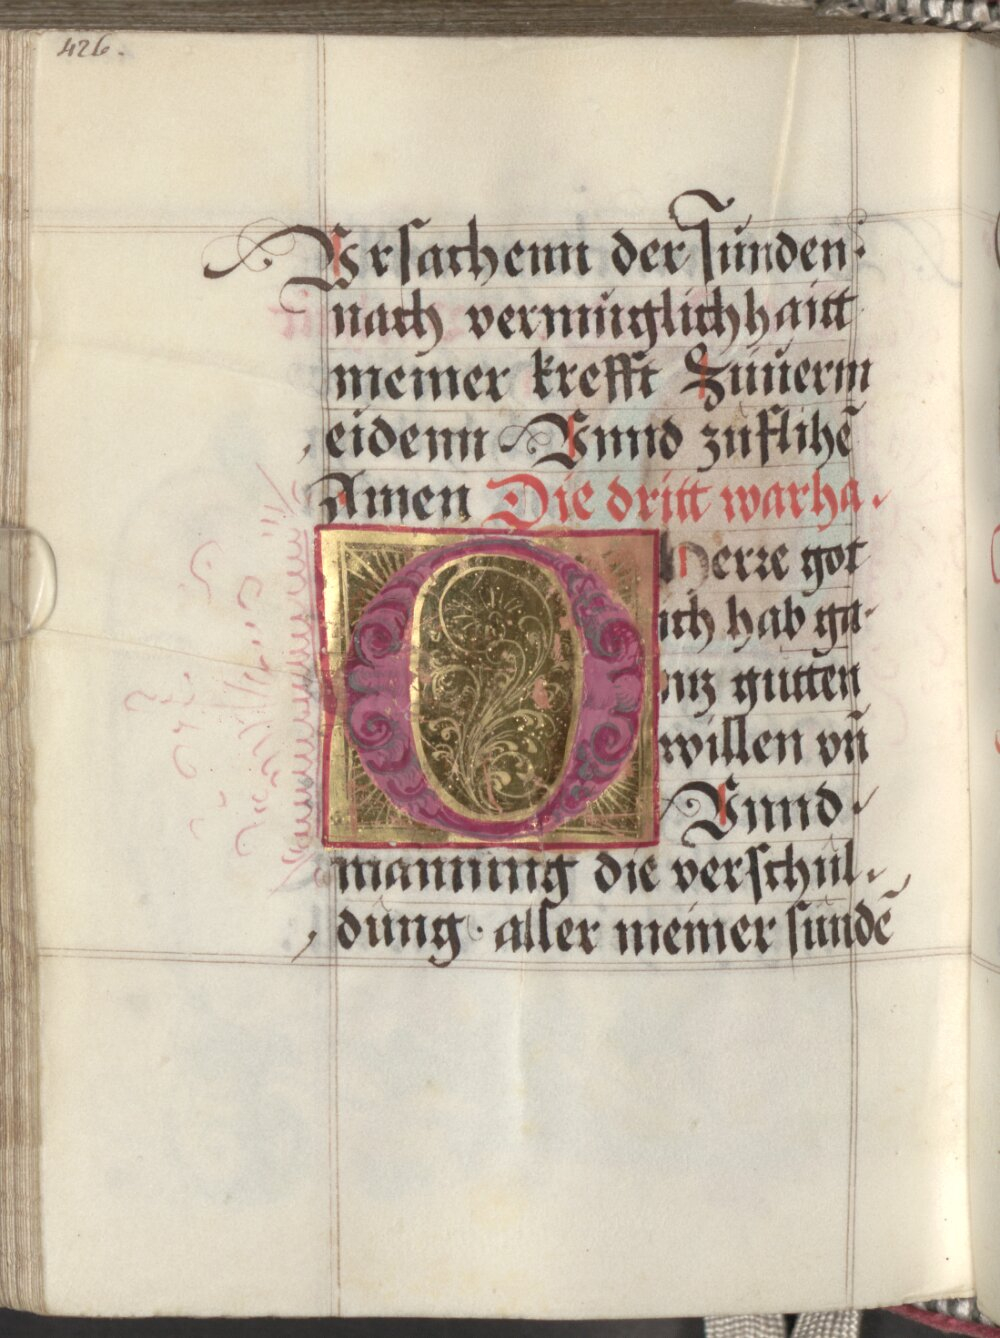 426.
Vrsachenn der sünden
nach vermüglichhaitt
meiner krefft Züuerm
eidenn Vnnd zuflihē
Amen Die dritt warha
O Herre got
ich hab ga
ntz gutten
willen vn̄
Vnnd
mannung die verschül
dung aller meiner sündē